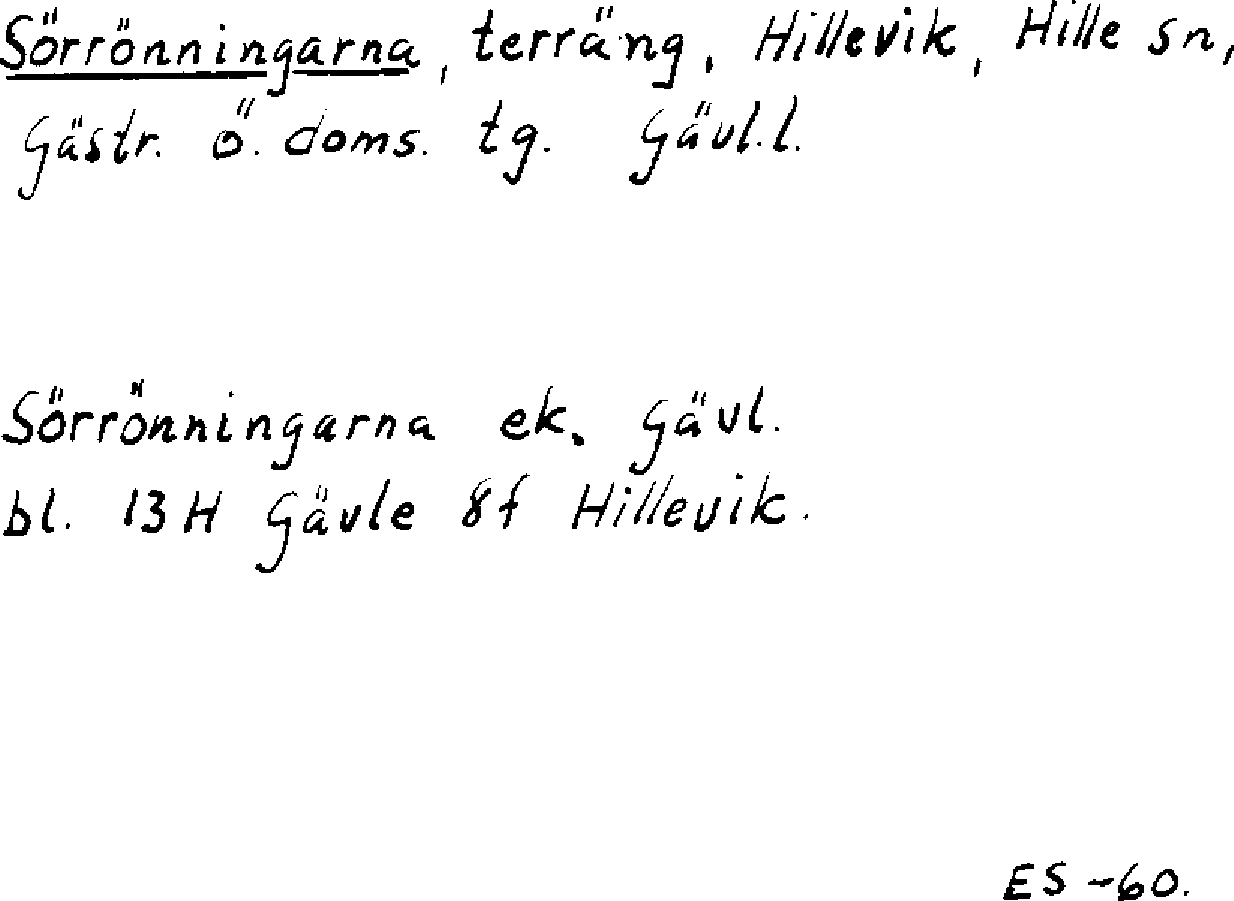 Sörrönningarna, terräng, Hillevik, Hille sn,
Gästr. ö. doms. tg. Gävl.l.
Sörrönningarna ek. Gävl.
bl. 13H Gävle 8f Hillevik.
ES -60.